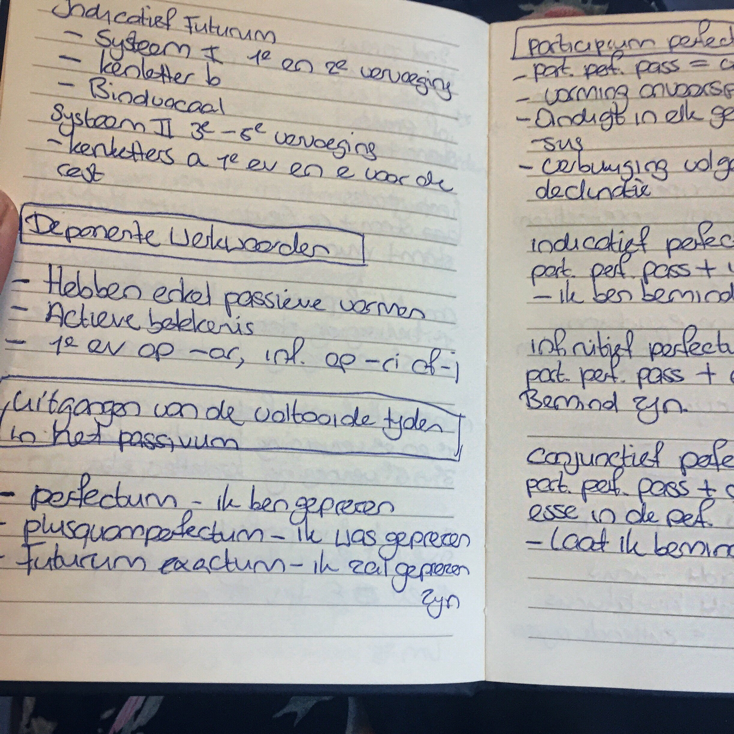 Indicatief Futurum
- Systeem I 1e en 2e vervoeging
- kenletter b
- Bindvocaal
Systeem II 3e - 5e vervoeging
- kenletters a 1e ev en e voor de
rest
Deponente Werkwoorden
- Hebben enkel passieve vormen
- Actieve betekenis
- 1e ev op -or, inf. op -ri of -i
Uitgangen van de voltooide tyden
in het passivum
- perfectum - ik ben geprezen
- plusquamperfectum - ik was geprezen
- Futurum exactum - ik zal geprezen
zyn
participium perfec
- part. perf. pass =
- vorming onvoorsp
- Eindigt in elk ge
-sus
- verbuiging volg
declinatie
indicatief perfec
part. perf. pass +
- ik ben bemind
infinitief perfectu
part. perf. pass +
Bemind zyn.
conjunctief perfe
part. perf. pass +
esse in de perf.
- Laat ik bemin